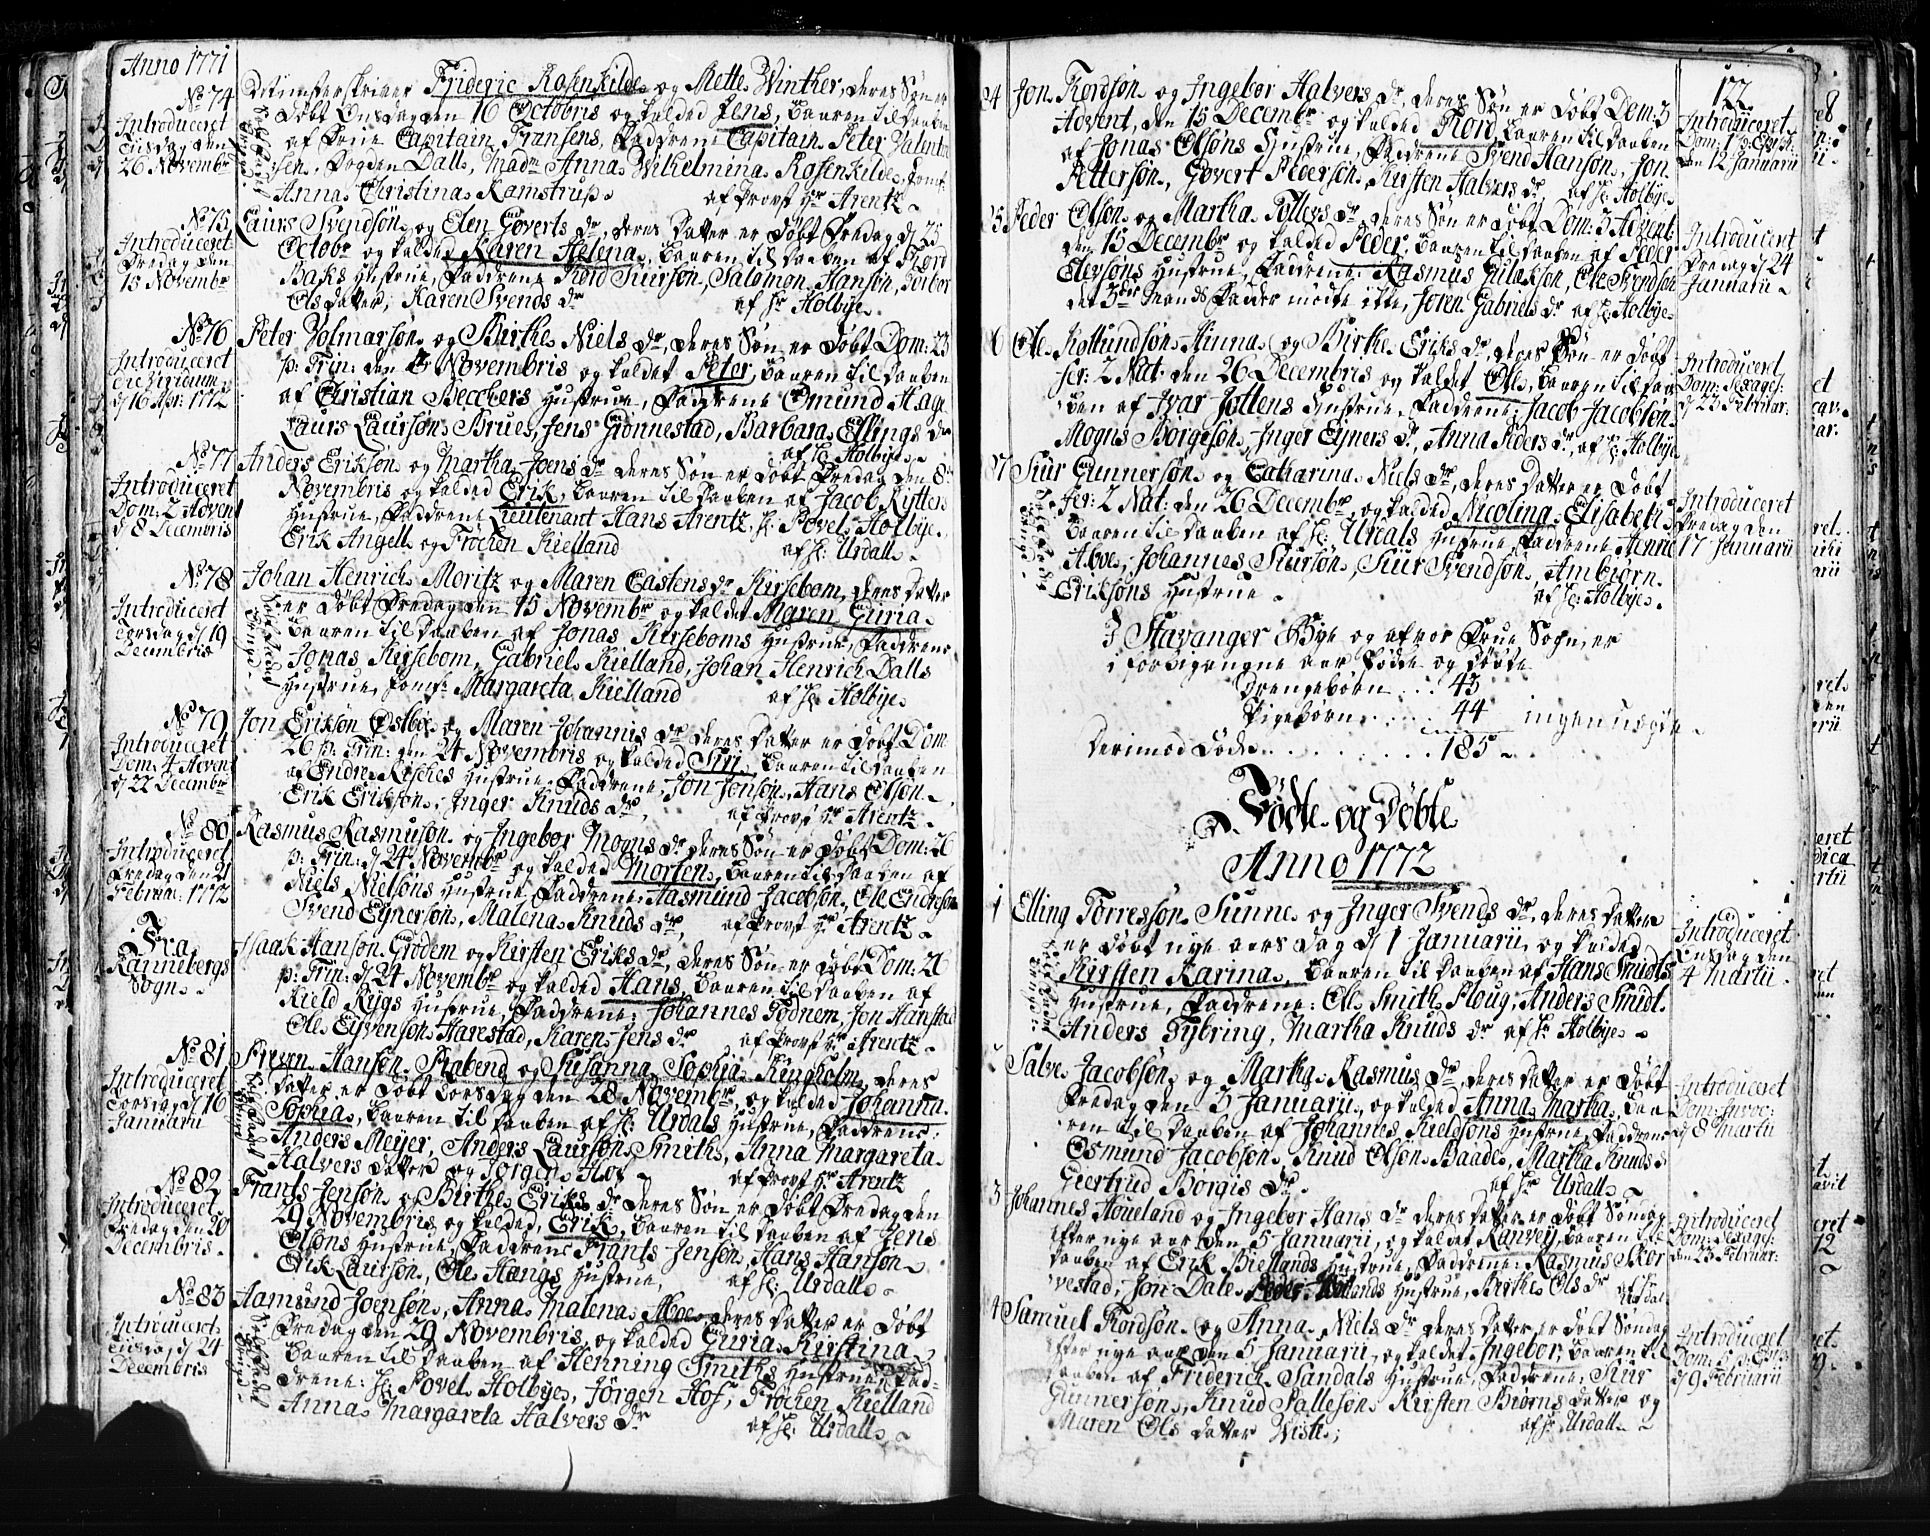 Anno 1771
No 74
Introduceret
Tisdag den
26 Novembr
Frideric Rosenkilde og Mette Winther, deres Søn er
Døbt Onsdag den 16 Octobris og kalded Jens, baaren til daaben
af Frue Capitain Fransens, Faddrene Capitain Peter Valentin
sen, Fogden Dall, Madm Anna Wilhelmina Rosenkilde, Jomf:
Anna Christina Kamstrup af Provst Hr Arentz
No 75
Introduceret
Fredag den
15 Novembr
Laurs Svendsøn og Elen Goverts dr, deres Datter er Døbt Fredag d 25
Octobr og kaldet Karen Helena, baaren til daaben af Tord
Baks Hustrue, Faddrene Tord Siursøn, Salomon Hansøn, Torbor
Olsdatter, Karen Svends dr af Hr Holbye
No 76
Introduceret
d 16 Apr: 1772
PeterHolmersøn og Birthe Niels dr, deres Søn er Døbt Dom: 23
p: Trin: den 3 Novembris og kaldet Peter, baaren til daaben
af Christian Beckers Hustrue, Faddrene Omund Hage
Laurs Laursøn Brue, Jens Gonnestad, Barbara Ellings dr
af Hr Holbye
No 77
Introduceret
Dom: 2 Advent
d 8 Decembris
Anders Eriksøn og Martha Joens dr deres Søn er døbt Fredag den 8
Novembris og kalded Erik, baaren til daaben af Jacob Rytters
Hustrue, Faddrene Lieutenant Hans Arentz, Hr Povel Holbye
Erik Angell og Frøken Kielland af Hr Urdall
No 78
Introduceret
Torsdag d 19
Decembris
Johan Henrich Moritz og Maren Castens dr Kirsebom, deres datter
er Døbt Fredag den 15 Novembr og kaldet Maren Guria
baaren til daaben af Jonas Kirseboms Hustrue, Faddrene
Jonas Kirsebom, Gabriel Kielland, Johan Henrich Dalls
Hustrue, Jomf: Margareta Kielland af Hr Holbye
No 79
Introduceret
Dom: 4 Advent
d 22 Decembr
Jon Eriksøn Ostbøe og Maren Johannis dr deres datter er døbt Dom
26 p: Trin: den 24 Novembris og kalded Siri, baaren til daaben
af Endre Hustrue, Faddrene, Jon Jonsøn, Hans Olsøn
Erik Eriksøn, Inger Knuds dr, af Provst Hr Arentz
No 80
Introduceret
Fredag den 21
Februar: 1772
Rasmus Rasmusøn og Ingebor Mogns dr deres Søn er døbt Dom: 26
p: Trin: d 24 Novembr og kalded Morten, baaren til daaben af
Niels Nielsøns Hustrue, Faddrene Aasmund Jacobsøn, Ole Endresøn
Svend Eynersøn, Malena Knuds dr, af Provst Hr Arentz
Fra
Rannebergs
Sogn
Isaak Hansøn Grødem og Kirsten Eriks dr, deres Søn er døbt Dom: 26
p: Trin: d 24 Novembr og kalded Hans, baaren til daaben af
Kield Rygs Hustrue, Faddrene: Johannes Todnem, Jon Hanstad
Ole Eyvensøn Harestad, Karen Jens dr af Provst Hr Arentz
No 81
Introduceret
Torsdag d 16
Januarii
Preven Hansøn Krabend og Susanna Sophia Ringholm, deres
datter er Døbt Torsdag den 28 Novembr og kalded Johanna
Sophia, baaren til daaben af Hr Urdals Hustrue, Faddrene:
Anders Meijer, Anders Laursøn Smith, Anna Margareta
Halvers datter og Jørgen Hof af Provst Hr Arentz
No 82
Introduceret
Fredag den 20
Decembris
Frants Jensøn og Birthe Eriks dr deres Søn er Døbt Fredag den
29 Novembris og kalded Erik, baaren til daaben af Jens
Olsøns Hustrue, Faddrene Frants Jensøn, Hans Hansøn
Erik Laursøn, Ole Haengs Hustrue, af Hr Urdall
No 83
Introduceret
Tisdag d 24
Decembris
Aamund Joensøn, Anna Malena deres datter er Døbt
Fredag den 29 Novembris og kalded Guria Kirstina
baaren til daaben af Henning Smiths Hustrue, Fad-
drene: Hr Povel Holbye, Jørgen Hof, Frøken Kielland
Anna Margareta Halvers dr af Hr Urdall
84 Jon Tordsøn og Ingebor Halvers dr, deres Søn er Døbt Dom: 3
Advent, den 15 Decembr og kalded Tord, baaren til daaben
af Jonas Olsøns Hustrue, Faddrene Svend Hansøn, Jon
Pettersøn, Govert Pedersøn, Kirsten Halvers dr af Hr Holbye
177
Introduceret
Dom: 1 p: Epiph:
den 12 Januarii
85 Peder Olsøn og Martha Tollers dr, deres Søn er døbt Dom: 3 Advent
den 15 Decembr og kalded Peder, baaren til daaben af Peder
Olevsøns Hustrue, Faddrene: Rasmus Gulaksøn, Ole Svendsøn
det 3die Mands Fadder mødte ikke, Joren Gabriels dr af Hr Holbye
Introduceret
Fredag d 24
Januarii
86 Ole Rollundsøn Hinna og Birthe Eriks dr, deres Søn er Døbt
fer: 2 Nat: den 26 Decembris og kaldet Ole, baaren til daa
ben af Ivar Jottens Hustrue, Faddrene: Jacob Jacobsøn
Mogns Borgesøn, Inger Eyners dr, Anna Peders dr, af Hr Holbye
Introduceret
Dom: Sexages:
d 23 Februar:
87 Siur Gunnersøn og Catharina Niels dr, deres datter er Døbt
fer: 2 Nat: den 26 Decembr og kalded Nicolina Elisabeth
baaren til daaben af Hr Urdals Hustrue, Faddrene Henric
Aboe, Johannes Siursøn, Siur Svendsøn, Ambiørn
Eriksøns Hustrue af Hr Holbye
Introduceret
Fredag den
17 Januarii
I Stavanger Bye og af vor Frue Sogn er
i forrigangne aar Fødde og Døbte
Drengebørn 43
Pigebørn 44 ingen uegte
Derimod Døde 185
Fødte og Døbte
Anno 1772
1 Elling Torressøn Sunne og Inger Svends dr, deres datter
er døbt nye aars dag d 1 Januarii og kalded
Kirsten Karina, baaren til daaben af Hans Smidts
Hustrue, Faddrene: Ole Smith Ploug, Anders Smidt
Anders Tybring, Martha Knuds dr af Hr Holbye
Introduceret
Onsdag den
4 Martii
Salve Jacobsøn og Martha Rasmus dr, deres datter er Døbt
Fredag den 3 Januarii, og kalded Anna Martha, baa
ren til daaben af Johannes Kieldsøns Hustrue, Faddrene
Osmund Jacobsøn, Knud Olsøn Baade, Martha Knuds d
Giertrud Borgis dr af Hr Urdall
Introduceret
Dom: Invoc:
d 8 Martii
3 Johannes Houeland og Ingebor Hans dr deres datter er Døbt Søndag
efter nye aar den 5 Januarii, og kaldet Ranvey, baaren til
daaben af Erik Biellands Hustrue, Faddrene: Rasmus Skor
vestad, Jon Dale, Peder Hustrue, Birthe Ols dr af Hr Urdal
Introduceret
Dom: Sexages:
den 23 Februar:
4 Samuel Tordsøn og Anna Niels dr deres datter er døbt Søndag
efter nye aar den 5 Januarii, og kaldet Ingebor, baaren til
daaben af Friderich Sandals Hustrue, Faddrene, Siur
Gunnersøn, Knud Pallesøn, Kirsten Biørns datter og
Maren Ols datter Viste; af Hr Urdall
Introduceret
Dom: 5 p: Epiph:
d 9 Februarii